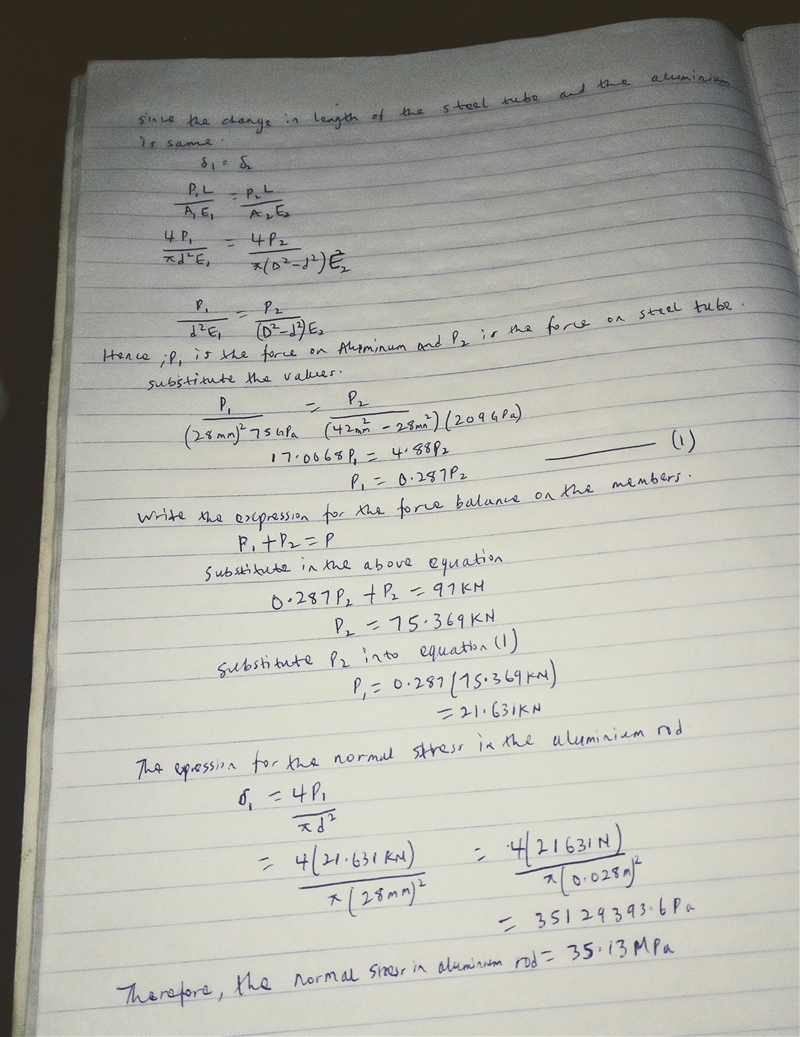 since the change in length of the steel tube and the aluminium
is same.
δ₁ = δ₂
P₁L/A₁E₁ = P₂L/A₂E₂
4P₁/πd²E₁ = 4P₂/π(D²-d²)E₂
P₁/d²E₁ = P₂/(D²-d²)E₂
Hence ; P₁ is the force on Aluminum and P₂ is the force on steel tube.
substitute the values.
P₁/(28mm)² 75GPa = P₂/(42mm² - 28mm²)(209GPa)
17.0068P₁ = 4.88P₂
P₁ = 0.287P₂ ——— (1)
Write the expression for the force balance on the members.
P₁ + P₂ = P
Substitute in the above equation
0.287P₂ + P₂ = 97KN
P₂ = 75.369KN
Substitute P₂ into equation (1)
P₁ = 0.287(75.369KN)
= 21.631KN
The epression for the normal stress in the aluminium rod
σ₁ = 4P₁/πd²
= 4(21.631KN)/π(28mm)² = 4(21631N)/π(0.028m)²
= 35129393.6Pa
Therefore, the normal stress in aluminium rod = 35.13MPa